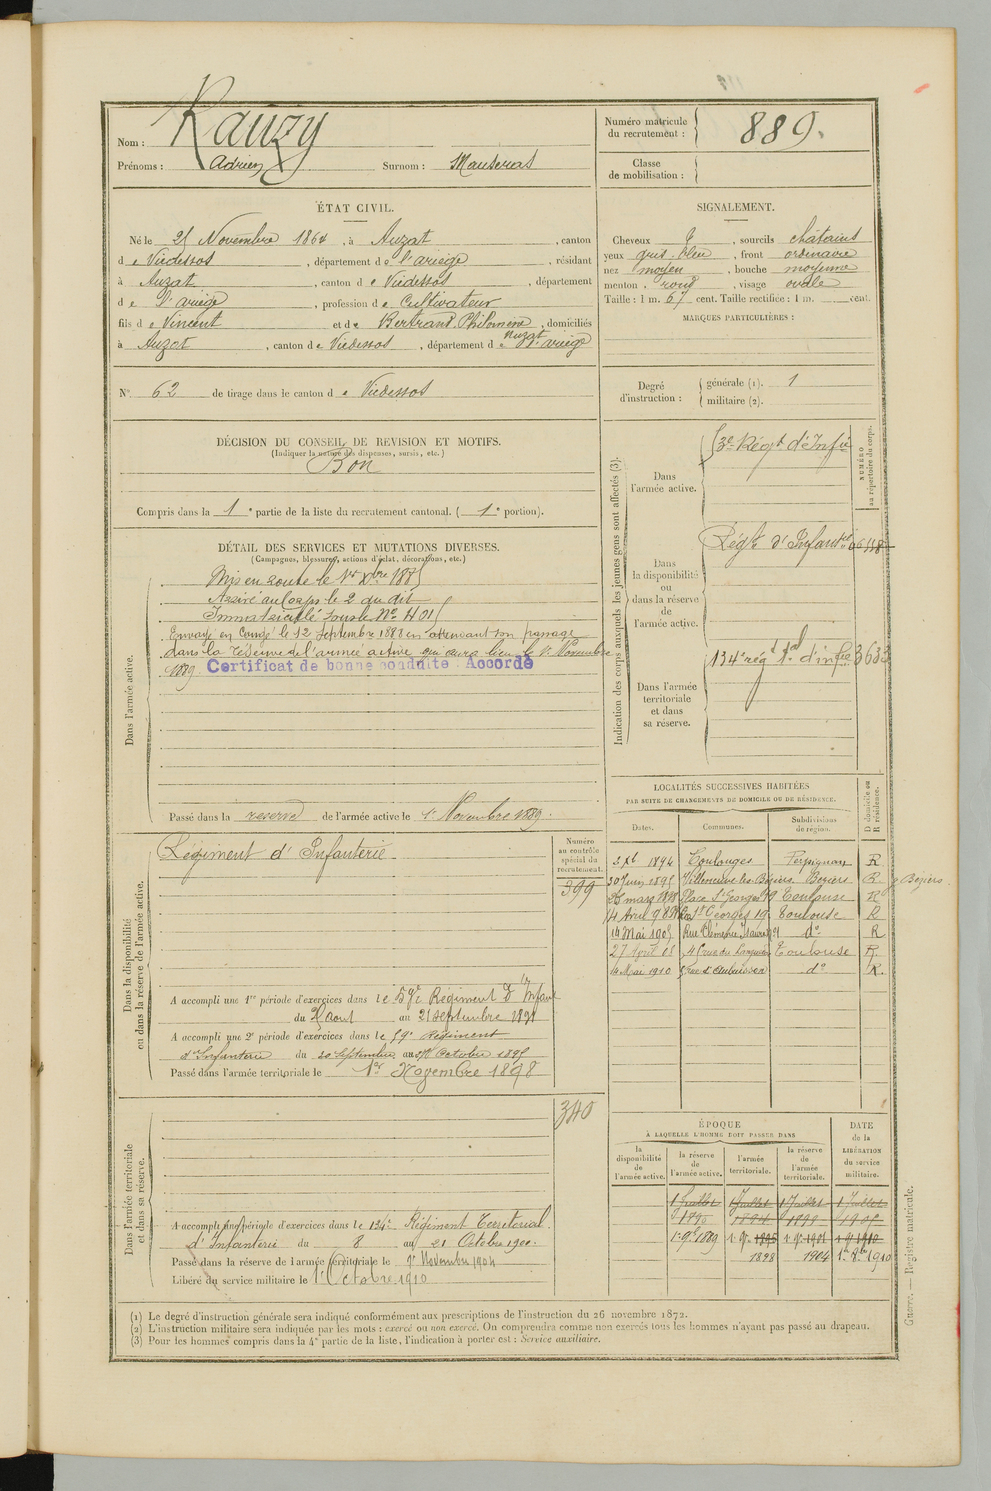 Nom : Rauzy
Prénoms : Adrien Surnom : Mauseras
Numéro matricule du recrutement : 889.
Classe de mobilisation :
ÉTAT CIVIL.
Né le 25 Novembre 1864, à Auzat, canton
de Vicdessos, département de l'ariège, résidant
à Auzat, canton de Vicdessos, département
de l'ariège, profession de Cultivateur
fils de Vincent et de Bertrand Philomène, domiciliés
à Auzat, canton de Vicdessos, département de l'ariège
N° 62 de tirage dans le canton de Vicdessos
SIGNALEMENT.
Cheveux, sourcils châtains
yeux gris-bleu, front ordinaire
nez moyen, bouche moyenne
menton rond, visage ovale
Taille : 1 m. 67 cent. Taille rectifiée : 1 m. cent.
MARQUES PARTICULIÈRES :
Degré d'instruction : générale (1). 1
militaire (2).
DÉCISION DU CONSEIL DE REVISION ET MOTIFS.
(Indiquer la nature des dispenses, sursis, etc.)
Bon
Compris dans la 1e partie de la liste du recrutement cantonal. (1e portion).
DÉTAIL DES SERVICES ET MUTATIONS DIVERSES.
(Campagnes, blessures, actions d'éclat, décorations, etc.)
Dans l'armée active.
Mis en route le 1er Xbre 1885
Arrivé au Corps le 2 du dit
Immatriculé sous le N° 4015
Envoyé en Congé le 12 Septembre 1888 en attendant son passage
dans la réserve de l'armée active qui aura lieu le 1er Novembre
1889. Certificat de bonne conduite : Accordé
Passé dans la reserve de l'armée active le 1er Novembre 1889.
Indication des corps auxquels les jeunes gens sont affectés (3).
NUMÉRO au répertoire du corps.
Dans l'armée active.
3e Régt d'Infie
Dans la disponibilité ou dans la réserve de l'armée active.
Régt d'Infanterie
Dans l'armée territoriale et dans sa réserve.
134e régt tal d'infie 3633
LOCALITÉS SUCCESSIVES HABITÉES
PAR SUITE DE CHANGEMENTS DE DOMICILE OU DE RÉSIDENCE.
Dates. Communes. Subdivisions de région. D domicile ou R résidence.
1894 Toulouges Perpignan R
30 Juin 1895 Villeneuve-les-Béziers Béziers R Béziers
mars 1898 Place St Georges 19 Toulouse R
14 Avril St Georges 19 Toulouse R
14 Mai 1905 Rue Clémence Isaure do R
27 Avril 08 rue du Languedoc Toulouse R.
14 Mai 1910 d'Aubuisson do R.
Dans la disponibilité ou dans la réserve de l'armée active.
Régiment d'Infanterie
Numéro au contrôle spécial du recrutement.
399
A accompli une 1re période d'exercices dans le 59e Régiment d'Infant
du Août au 21 septembre 1891
A accompli une 2e période d'exercices dans le 59e Régiment
d'Infanterie du 20 Septembre au Octobre 1895
Passé dans l'armée territoriale le 1er Novembre 1898
Dans l'armée territoriale et dans sa réserve.
340
A accompli une période d'exercices dans le 134e Régiment Territorial
d'Infanterie du 8 au 21 Octobre 1900.
Passé dans la réserve de l'armée territoriale le 1er Novembre 1904
Libéré du service militaire le 1er Octobre 1910
ÉPOQUE
À LAQUELLE L'HOMME DOIT PASSER DANS
DATE de la LIBÉRATION du service militaire.
la disponibilité de l'armée active. la réserve de l'armée active. l'armée territoriale. la réserve de l'armée territoriale.
1 Juillet 1 Juillet 1 Juillet 1 Juillet
1890 1899 1905
1889
1898 1904 1910
(1) Le degré d'instruction générale sera indiqué conformément aux prescriptions de l'instruction du 26 novembre 1872.
(2) L'instruction militaire sera indiquée par les mots : exercé ou non exercé. On comprendra comme non exercés tous les hommes n'ayant pas passé au drapeau.
(3) Pour les hommes compris dans la 4e partie de la liste, l'indication à porter est : Service auxiliaire.
Guerre. — Registre matricule.